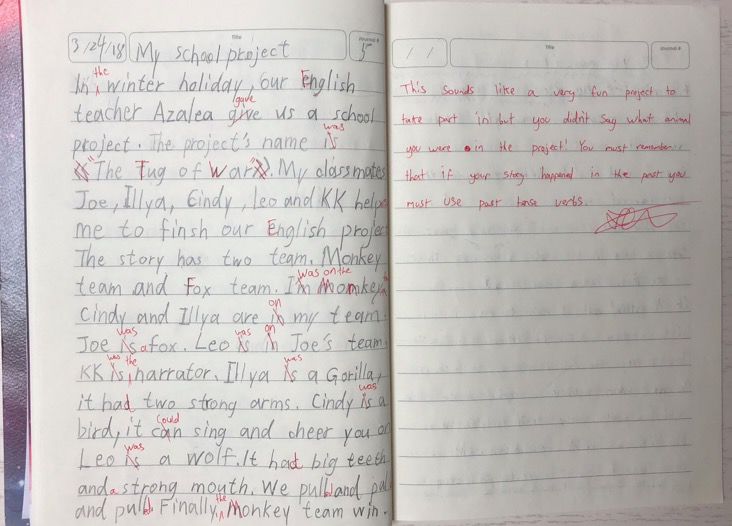 3/24/18
Title
My school project
Journal #
5
the
In ^ winter holiday, our English
gave
teacher Azalea give us a school
was
project. The project's name is
"The Tug of War". My classmates
Joe, Illya, Cindy, Leo and KK help
me to finsh our English project
The story has two team. Monkey
was on the
team and Fox team. I'm Monkey
on
Cindy and Illya are in my team.
was was on
Joe is a fox. Leo is in Joe's team.
was the was
KK is, narrator. Illya is a Gorilla,
was
it had two strong arms. Cindy is a
could
bird, it can sing and cheer you on
was
Leo is a wolf. It had big teeth
and a strong mouth. We pull and pull
the
and pull. Finally, Monkey team win.
/ /
Title
Journal #
This sounds like a very fun project to
take part in but you didn't say what animal
you were in the project! You must remember
that if your story happened in the past you
must use past tense verbs.